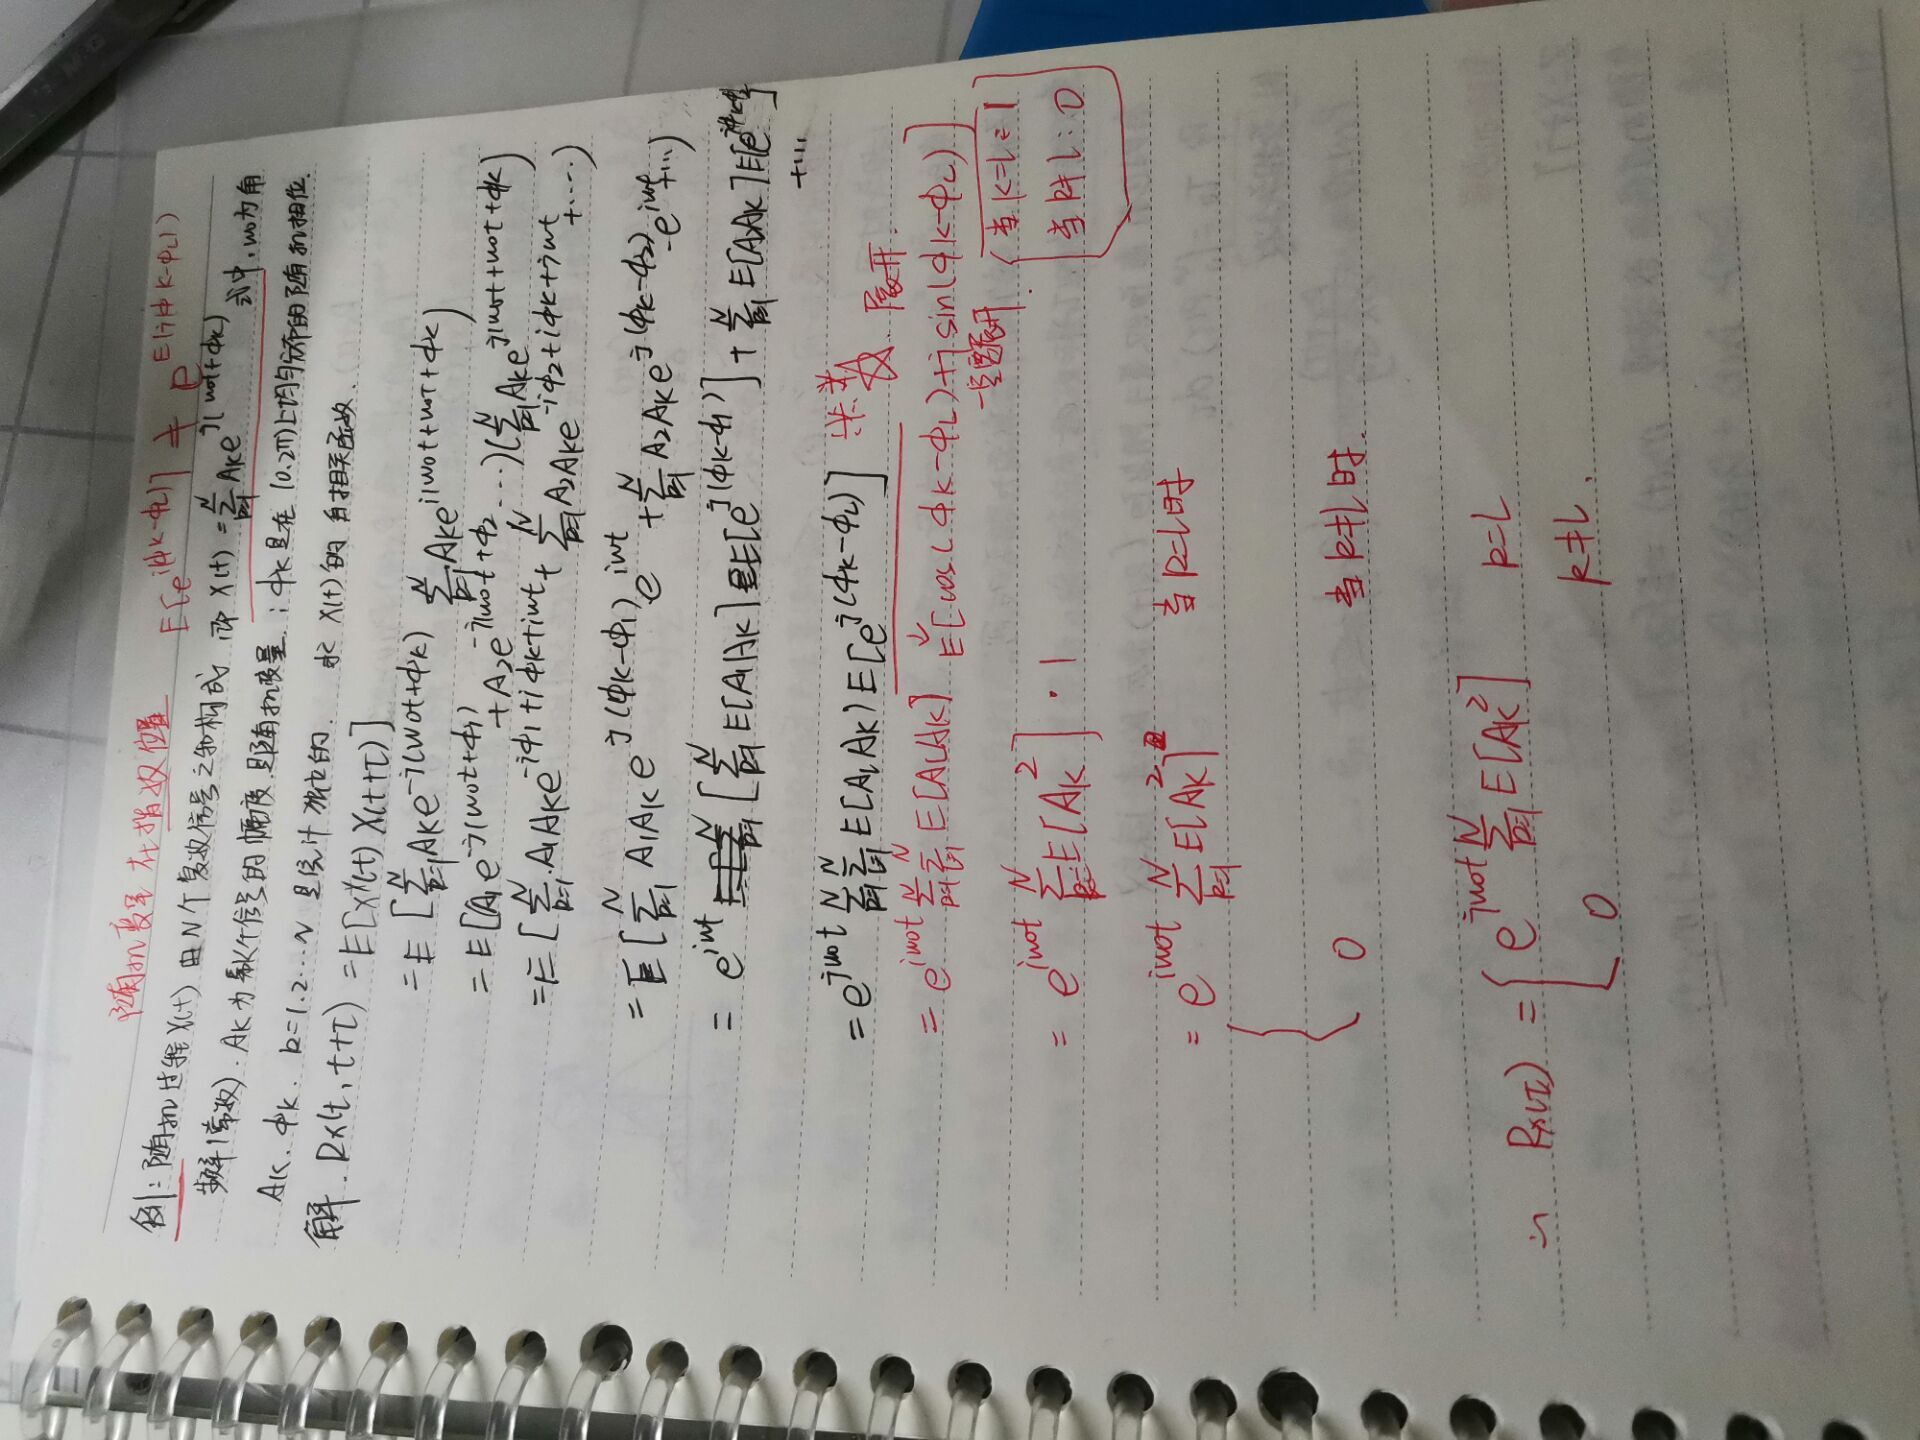 随机变量在指数位置 E[e^{j(φk-φL)}] ≠ e^{E(j(φk-φL))}
例:随机过程X(t)由N个复数信号之和构成 即 X(t)=\sum_{k=1}^{N} Ak e^{j(w0t+φk)} 式中,w0为角
频率(常数).AK为第k个信号的幅度 是随机变量;φk是在(0.2π)上均匀分布的随机相位.
AK、φk、k=1.2...N 是统计独立的. 求X(t)的自相关函数.
解.Rx(t,t+τ)=E[X*(t)X(t+τ)]
=E[\sum_{k=1}^{N} Ak e^{-j(w0t+φk)} \sum_{k=1}^{N} Ak e^{j(w0t+w0τ+φk)}]
=E[(A1e^{-j(w0t+φ1)}+A2e^{-j(w0t+φ2}...)(\sum_{k=1}^{N} Ak e^{j(w0t+w0τ+φk)}]
=E[\sum_{k=1}^{N} A1Ake^{-jφ1+jφk+jwτ}+\sum_{k=1}^{N} A2Ake^{-jφ2+jφk+jwτ}+.....)
=E[\sum_{k=1}^{N} A1Ak e^{j(φk-φ1)} e^{jwτ}+\sum_{k=1}^{N} A2Ak e^{j(φk-φ2)}·e^{jwτ}+...)
=e^{jwτ} [\sum_{k=1}^{N} E[A1Ak] E[e^{j(φk-φ1)}]+\sum_{k=1}^{N} E[A2Ak]E[e^{j(φk-φ2)}]
+...
=e^{jw0τ} \sum_{k=1}^{N} \sum_{L=1}^{N} E[ALAk) E[e^{j(φk-φL)}] ※※☆.展开.
=e^{jw0τ} \sum_{k=1}^{N} \sum_{L=1}^{N} E[ALAk] E[cos(φk-φL)+jsin(φk-φL)]
↓ 一定要展开.
=e^{jw0τ} \sum_{k=1}^{N} E[Ak^2]·1 {当k=L:1
当k≠L:0}
=e^{jw0τ} \sum_{k=1}^{N} E[Ak^2] 当k=L时
{
0 当k≠L时.
∴ Rx(τ)={ e^{jw0τ} \sum_{k=1}^{N} E[Ak^2] k=L
0 k≠L.